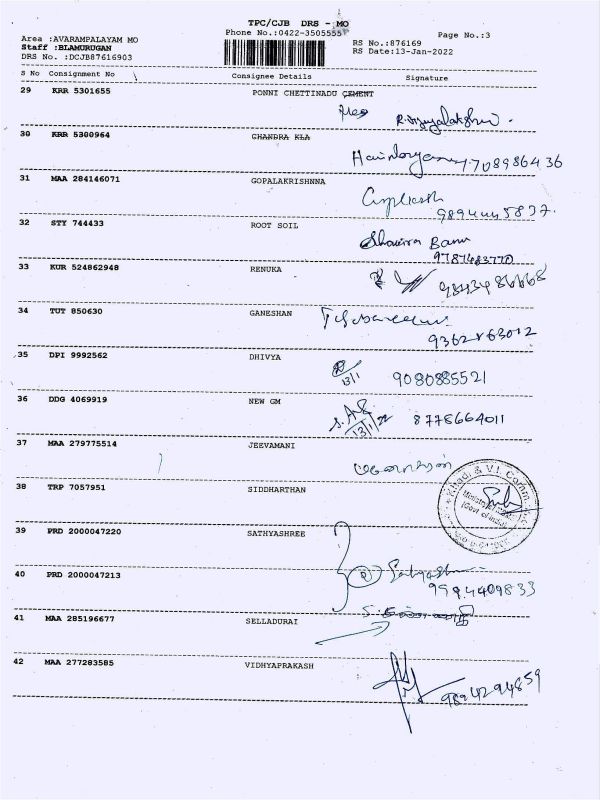 TPC/CJB DRS - MO
Phone No.:0422-3505555
Page No.:3
Area :AVARAMPALAYAM MO
Staff :BLAMURUGAN
DRS No. :DCJB87616903
RS No.:876169
RS Date:13-Jan-2022
S No Consignment No Consignee Details Signature
29 KRR 5301655 PONNI CHETTINADU CEMENT
R. Vijayalakshmi
30 KRR 5300964 CHANDRA KLA
7089864 36
31 MAA 284146071 GOPALAKRISHNNA
32 STY 744433 ROOT SOIL
Banu
9787483770
33 KUR 524862948 RENUKA
34 TUT 850630 GANESHAN
35 DPI 9992562 DHIVYA
13/1 9080885521
36 DDG 4069919 NEW GM
S.
13/1/22 8778664011
37 MAA 279775514 JEEVAMANI
Khadi & V.I. Comm
(Govt. of India)
38 TRP 7057951 SIDDHARTHAN
39 PRD 2000047220 SATHYASHREE
40 PRD 2000047213
9994409833
41 MAA 285196677 SELLADURAI
42 MAA 277283585 VIDHYAPRAKASH
9894294859